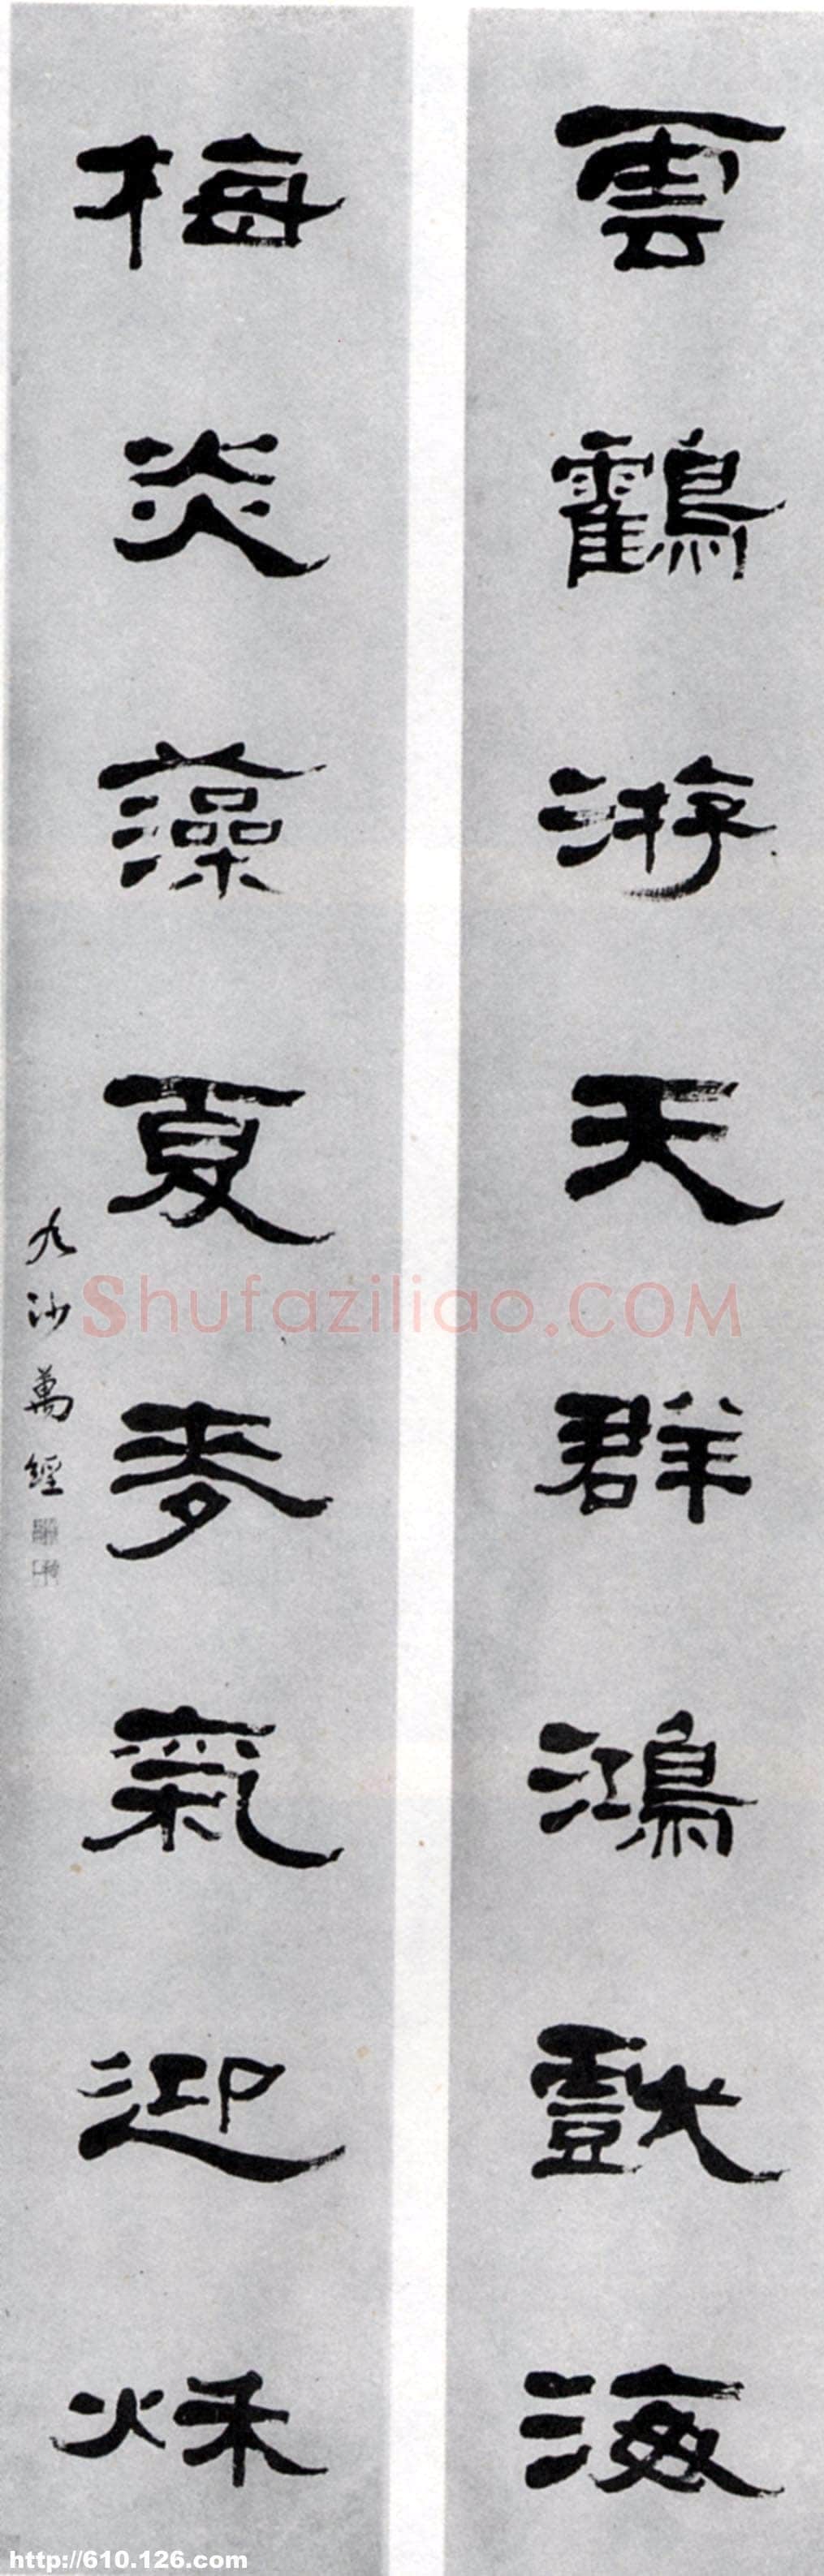 雲鸖游天群鴻戲海
梅炎藻夏麦氣迎秌
九沙萬經
Shufaziliao.COM
http://610.126.com